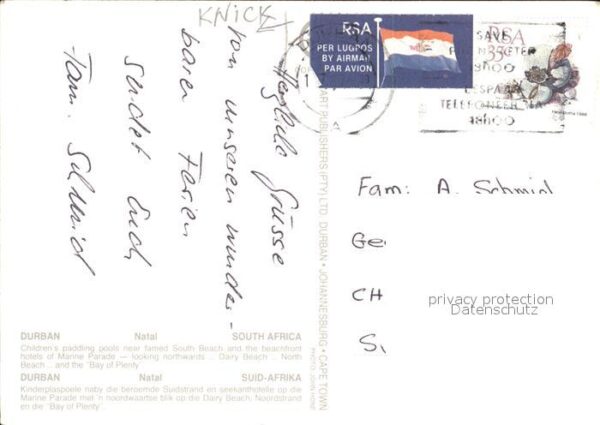 KNICK
RSA
PER LUGPOS
BY AIRMAIL
PAR AVION
RSA
35c
SAVE
1800
BESPAAR
TELEFONEER NA
18h00
Herzliche Grüsse
von unseren wunder-
baren Ferien
sendet Euch
Fam. Schmid
ART PUBLISHERS (PTY) LTD. DURBAN • JOHANNESBURG • CAPE TOWN
Fam: A. Schmid
Ge
CH
S
privacy protection
Datenschutz
DURBAN Natal SOUTH AFRICA
Children's paddling pools near famed South Beach and the beachfront
hotels of Marine Parade — looking northwards .. Dairy Beach .. North
Beach .. and the "Bay of Plenty"
DURBAN Natal SUID-AFRIKA
Kinderplaspoele naby die beroemde Suidstrand en seekanthotelle op die
Marine Parade met 'n noordwaartse blik op die Dairy Beach, Noordstrand
en die "Bay of Plenty".